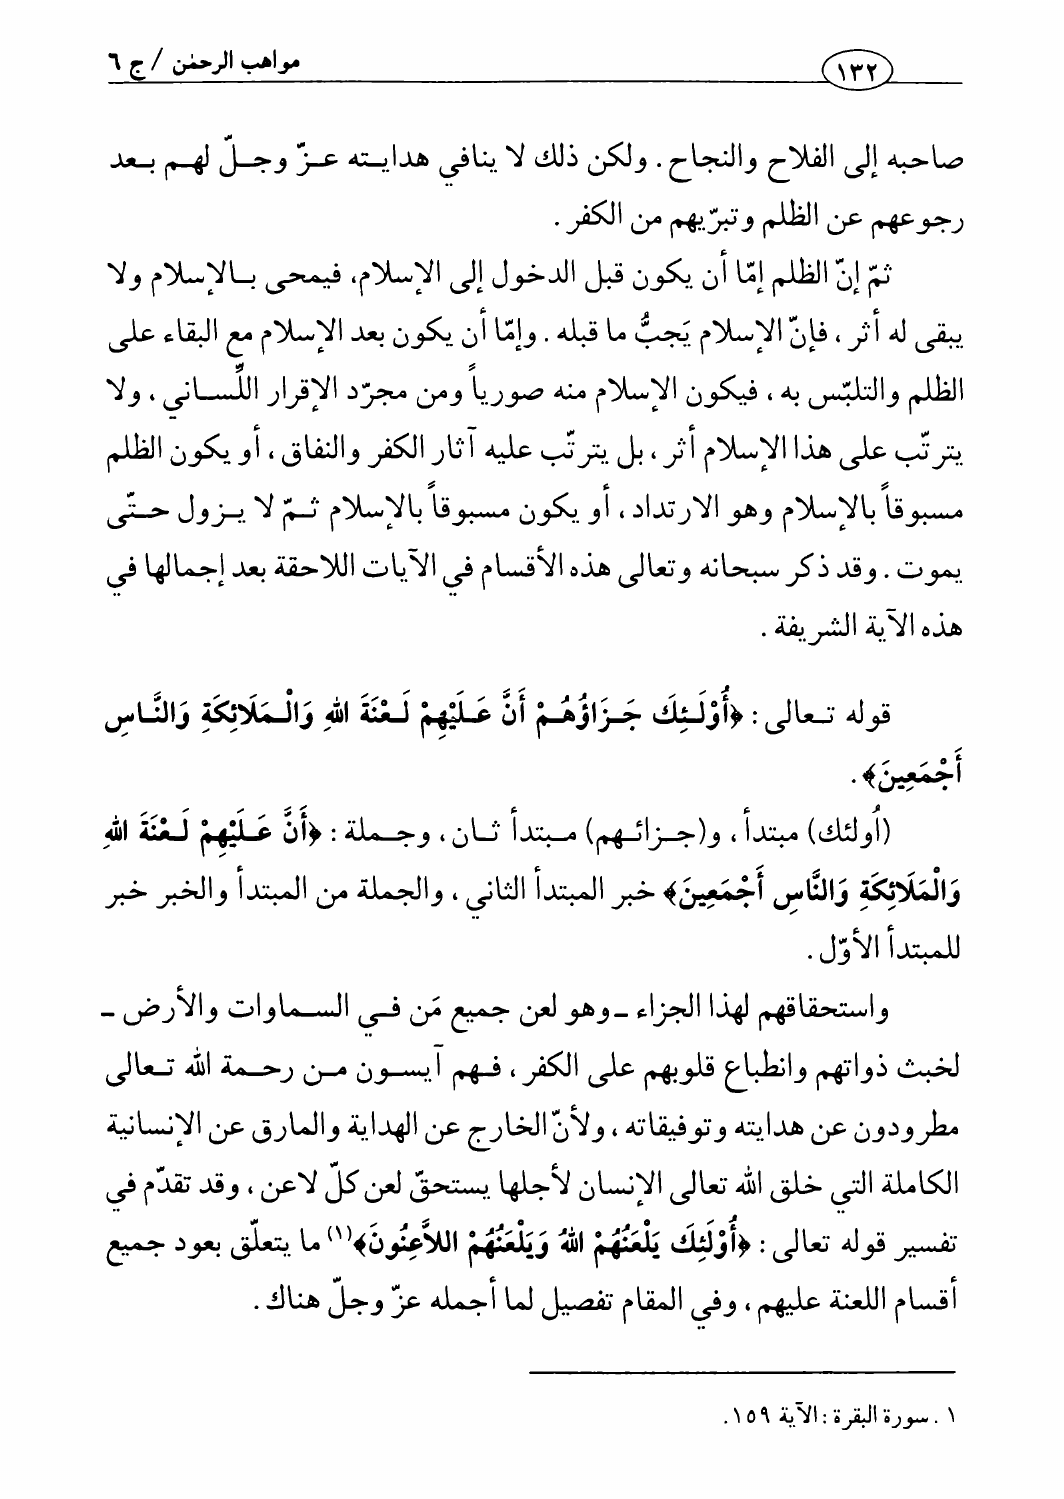 ١٣٢ مواهب الرحمٰن / ج ٦
صاحبه إلى الفلاح والنجاح . ولكن ذلك لا ينافي هدايـته عـزّ وجـلّ لهـم بـعد
رجوعهم عن الظلم وتبرّيهم من الكفر .
ثمّ إنّ الظلم إمّا أن يكون قبل الدخول إلى الإسلام، فيمحى بـالإسلام ولا
يبقى له أثر ، فإنّ الإسلام يَجبُّ ما قبله . وإمّا أن يكون بعد الإسلام مع البقاء على
الظلم والتلبّس به ، فيكون الإسلام منه صورياً ومن مجرّد الإقرار اللِّسـاني ، ولا
يترتّب على هذا الإسلام أثر ، بل يترتّب عليه آثار الكفر والنفاق ، أو يكون الظلم
مسبوقاً بالإسلام وهو الارتداد ، أو يكون مسبوقاً بالإسلام ثـمّ لا يـزول حـتّى
يموت . وقد ذكر سبحانه وتعالى هذه الأقسام في الآيات اللاحقة بعد إجمالها في
هذه الآية الشريفة .
قوله تـعالى : ﴿أُوْلَـئِكَ جَـزَاؤُهُـمْ أَنَّ عَـلَيْهِمْ لَـعْنَةَ اللهِ وَالْـمَلَائِكَةِ وَالنَّـاسِ
أَجْمَعِينَ﴾ .
(أُولئك) مبتدأ ، و(جـزائـهم) مـبتدأ ثـان ، وجـملة : ﴿أَنَّ عَـلَيْهِمْ لَـعْنَةَ اللهِ
وَالْمَلَائِكَةِ وَالنَّاسِ أَجْمَعِينَ﴾ خبر المبتدأ الثاني ، والجملة من المبتدأ والخبر خبر
للمبتدأ الأوّل .
واستحقاقهم لهذا الجزاء ـ وهو لعن جميع مَن فـي السـماوات والأرض ـ
لخبث ذواتهم وانطباع قلوبهم على الكفر ، فـهم آيسـون مـن رحـمة الله تـعالى
مطرودون عن هدايته وتوفيقاته ، ولأنّ الخارج عن الهداية والمارق عن الإنسانية
الكاملة التي خلق الله تعالى الإنسان لأجلها يستحقّ لعن كلّ لاعن ، وقد تقدّم في
تفسير قوله تعالى : ﴿أُوْلَئِكَ يَلْعَنُهُمْ اللهُ وَيَلْعَنُهُمْ اللاَّعِنُونَ﴾(١) ما يتعلّق بعود جميع
أقسام اللعنة عليهم ، وفي المقام تفصيل لما أجمله عزّ وجلّ هناك .
١ . سورة البقرة : الآية ١٥٩ .